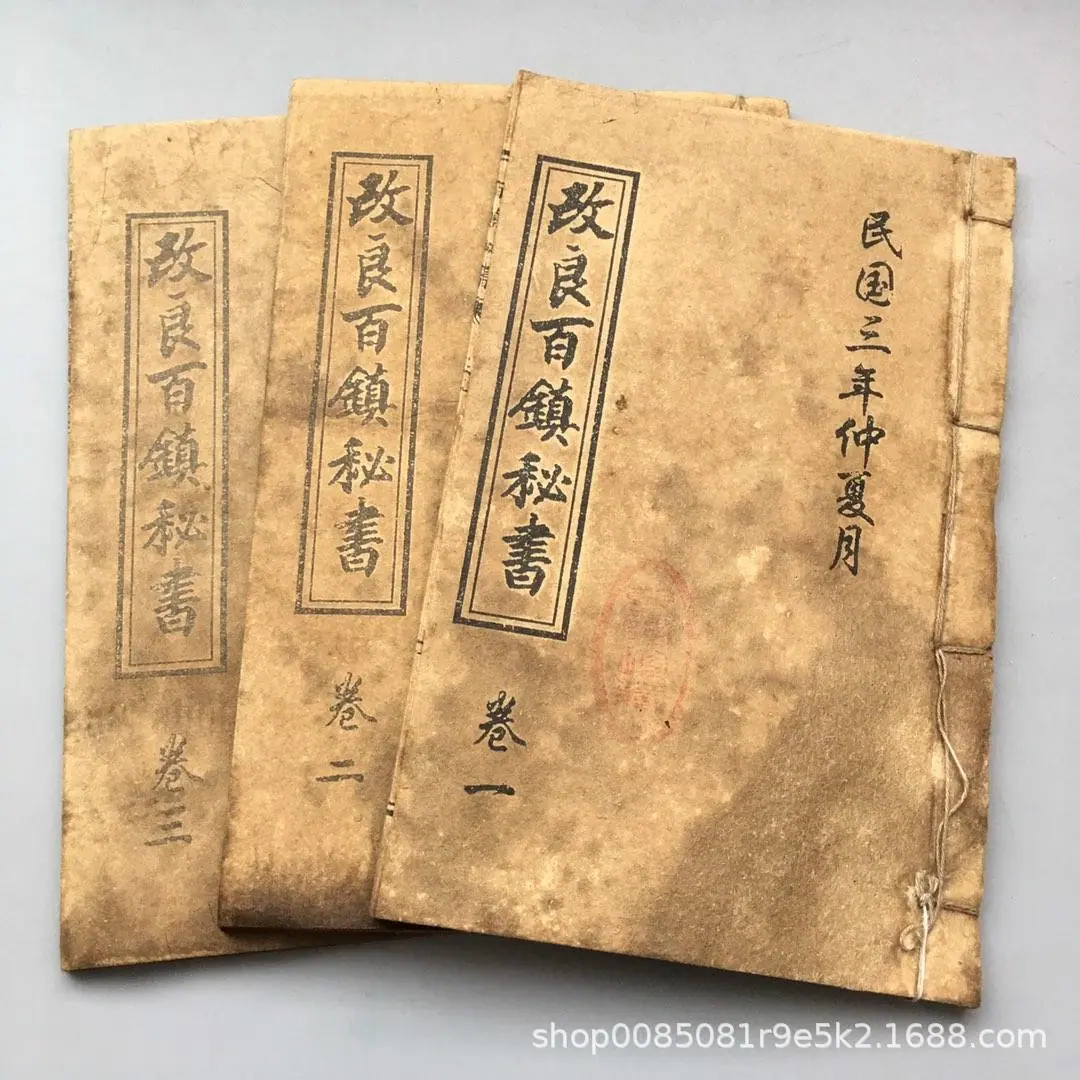 民国三年仲夏月
改良百鎮秘書
卷一
改良百鎮秘書
卷二
改良百鎮秘書
卷三
shop0085081r9e5k2.1688.com